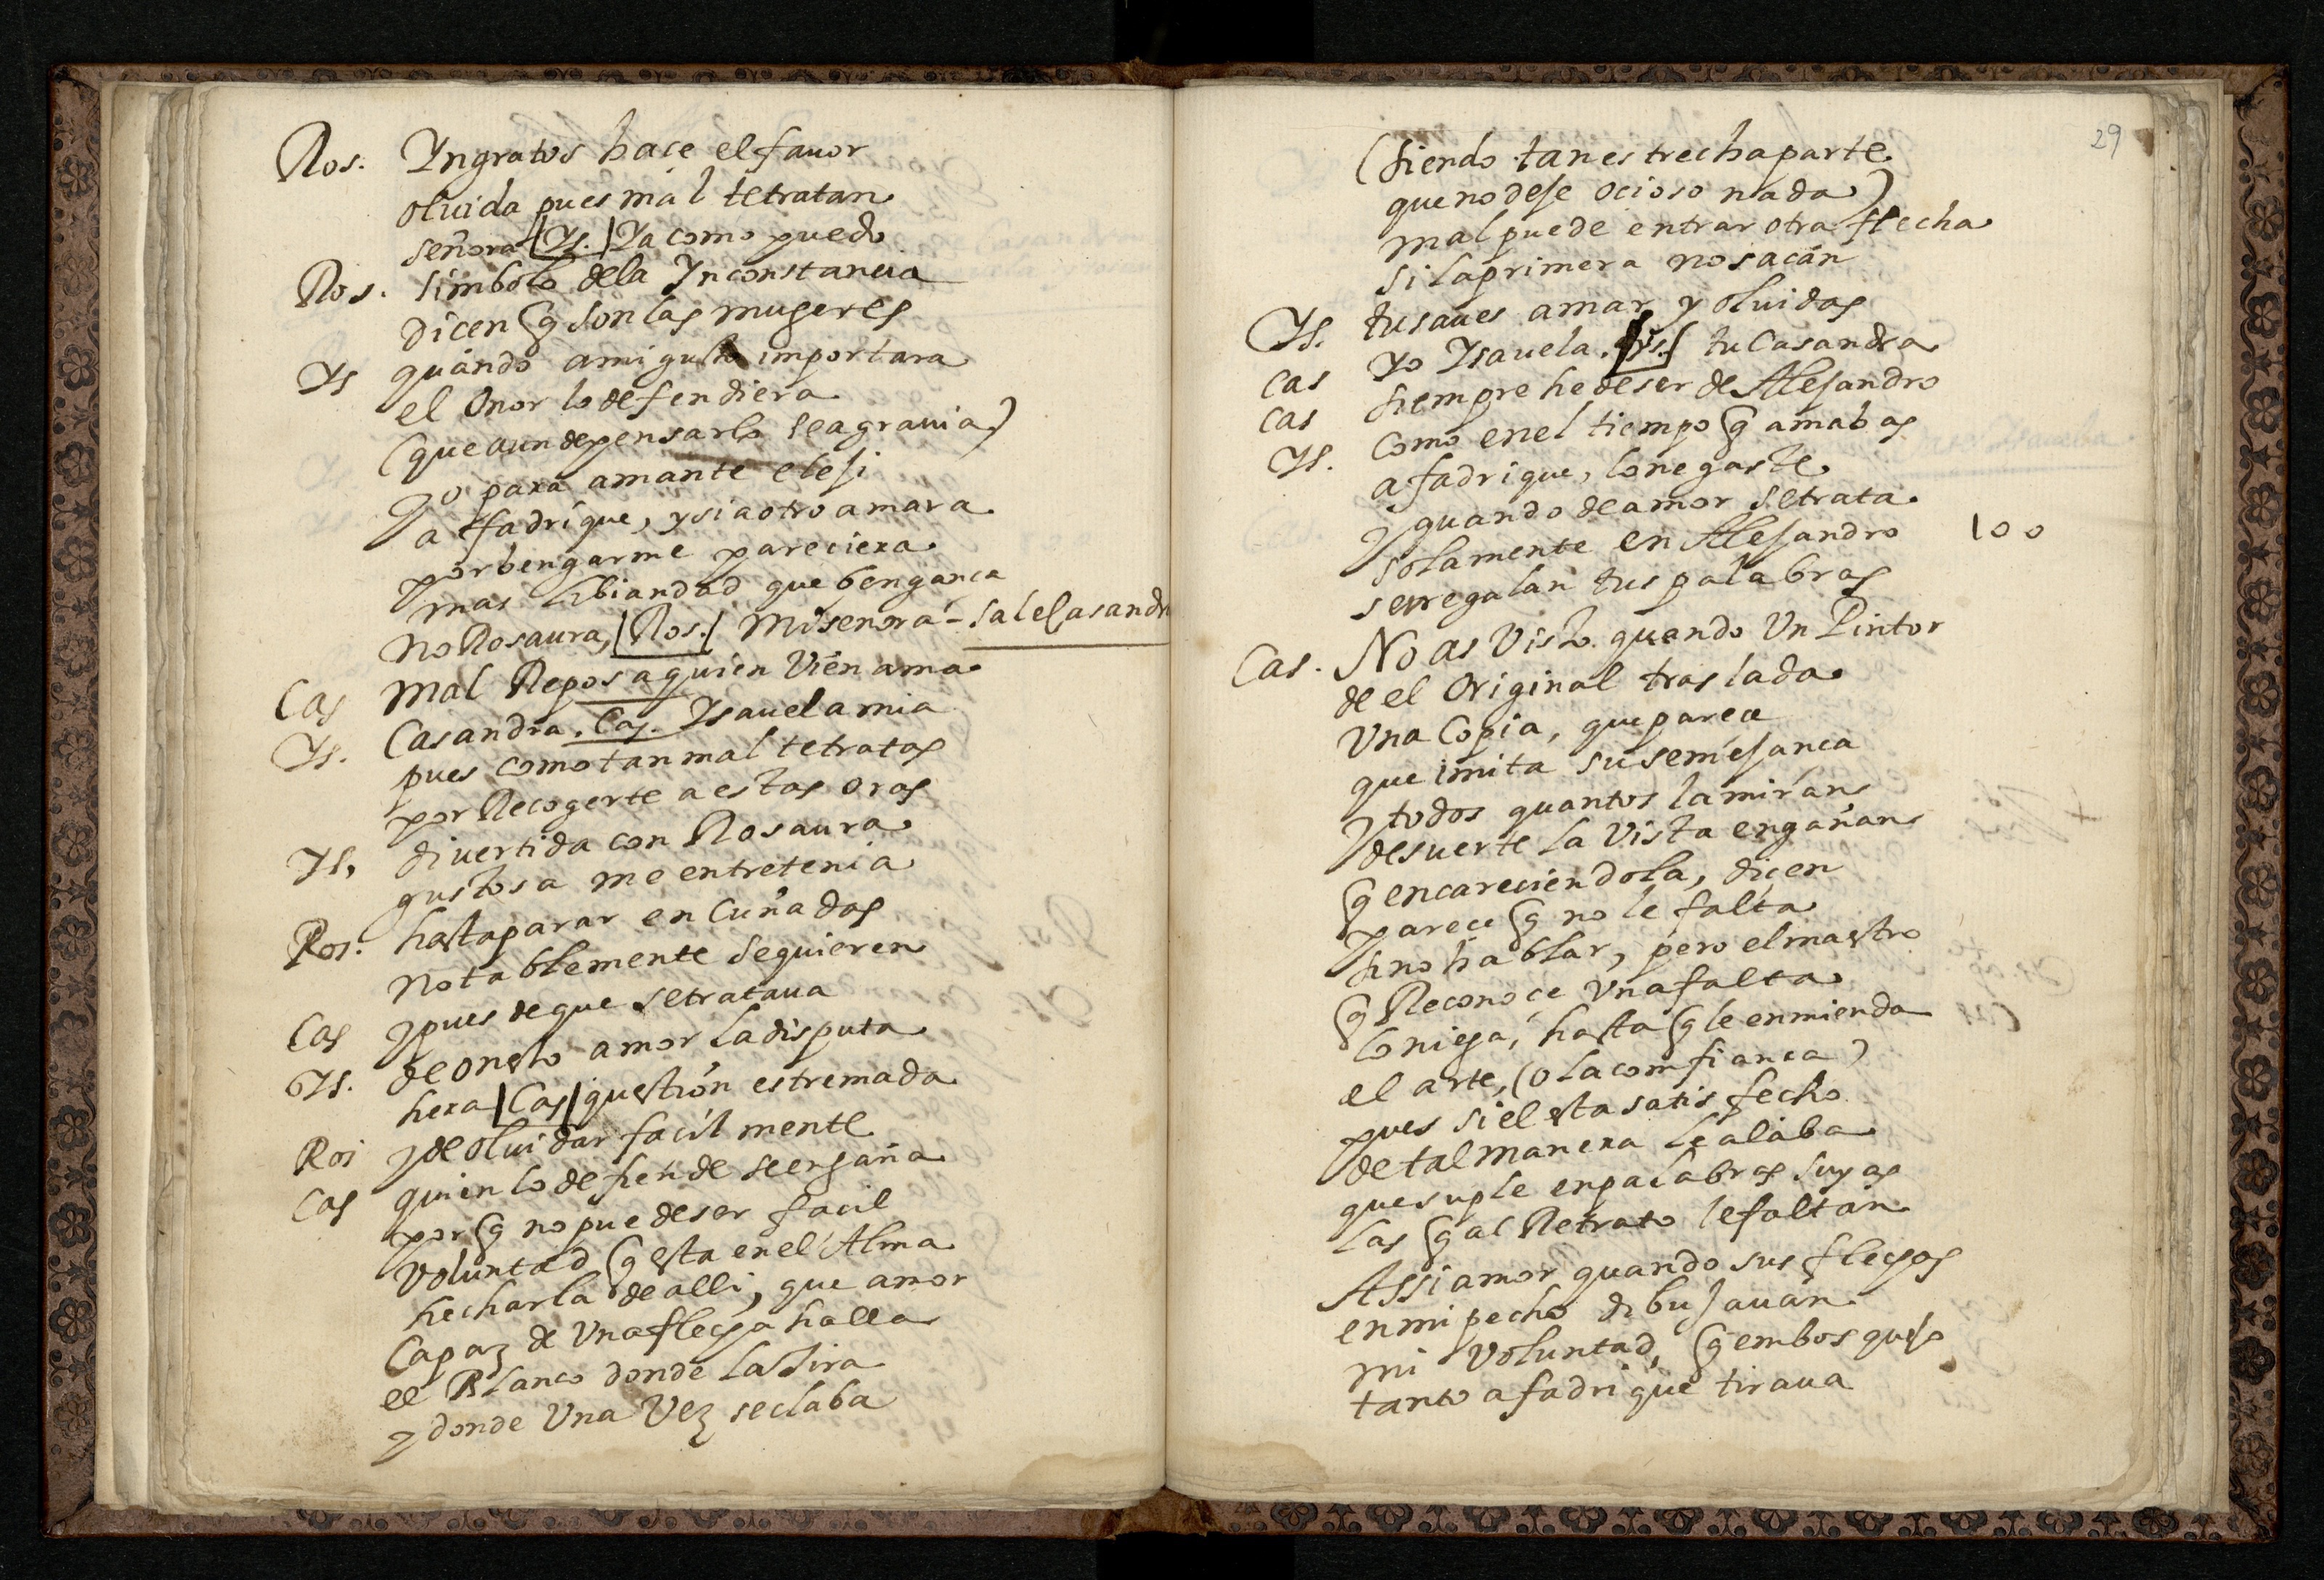 Ros. Yngratos hace el fauor
oluida pues mal te tratan
señora |Ys.| Ya como puedo
Ros. simbolo dela Ynconstancia
dicen q son las mugeres
Ys quando a mi gusto importara
el onor lo defendiera
(que aun de pensarlo se agrauia)
Yo para amante elegi
a fadrique, y si a otro amara
por bengarme pareciera
mas libiandad que bengança
No Rosaura, |Ros.| Mi señora - sale Casandra
Cas mal Reposa quien Vien ama
Ys. Casandra. Cas. Ysauela mia
pues como tan mal te tratas
por Recogerte a estas oras
Ys. diuertida con Rosaura
gustosa me entretenia
Ros. hasta parar en cuñadas
notablemente se quieren
Cas y pues de que se trataua
Ys. de onesto amor la disputa
hera |Cas| questión estremada
Ros y de oluidar facil mente
Cas quien lo defiende se engaña
por q no puede ser facil
voluntad q esta en el Alma
hecharla de alli, que amor
Capaz de Vna flecha halla
el Blanco donde la tira
y donde Vna Vez se claba
29
(siendo tan estrecha parte
que no deje ocioso nada)
mal puede entrar otra flecha
si la primera no sacan
Ys. tu saues amar y oluidas
Cas Yo Ysauela. |Ys.| tu Casandra
Cas siempre he de ser de Alejandro
Ys. Como en el tiempo q amabas
a fadrique, lo negaste
y quando de amor se trata
solamente en Alejandro 100
se regalan tus palabras
Cas. No as Visto quando Vn Pintor
de el Original traslada
Vna Copia, que parece
que imita su semejança
y todos quantos la miran
de suerte la Vista engañan
q encareciendola, dicen
parece q no le falta
sino hablar, pero el maestro
q Reconoce Vna falta
lo niega, hasta q le enmienda
el arte, (o la comfiança)
pues si el esta satisfecho
de tal manera le alaba
que suple en palabras suyas
las q al Retrato le faltan
Assi amor quando sus flechas
en mi pecho dibujauan
mi Voluntad, q embosquejo
tanto a fadrique tiraua